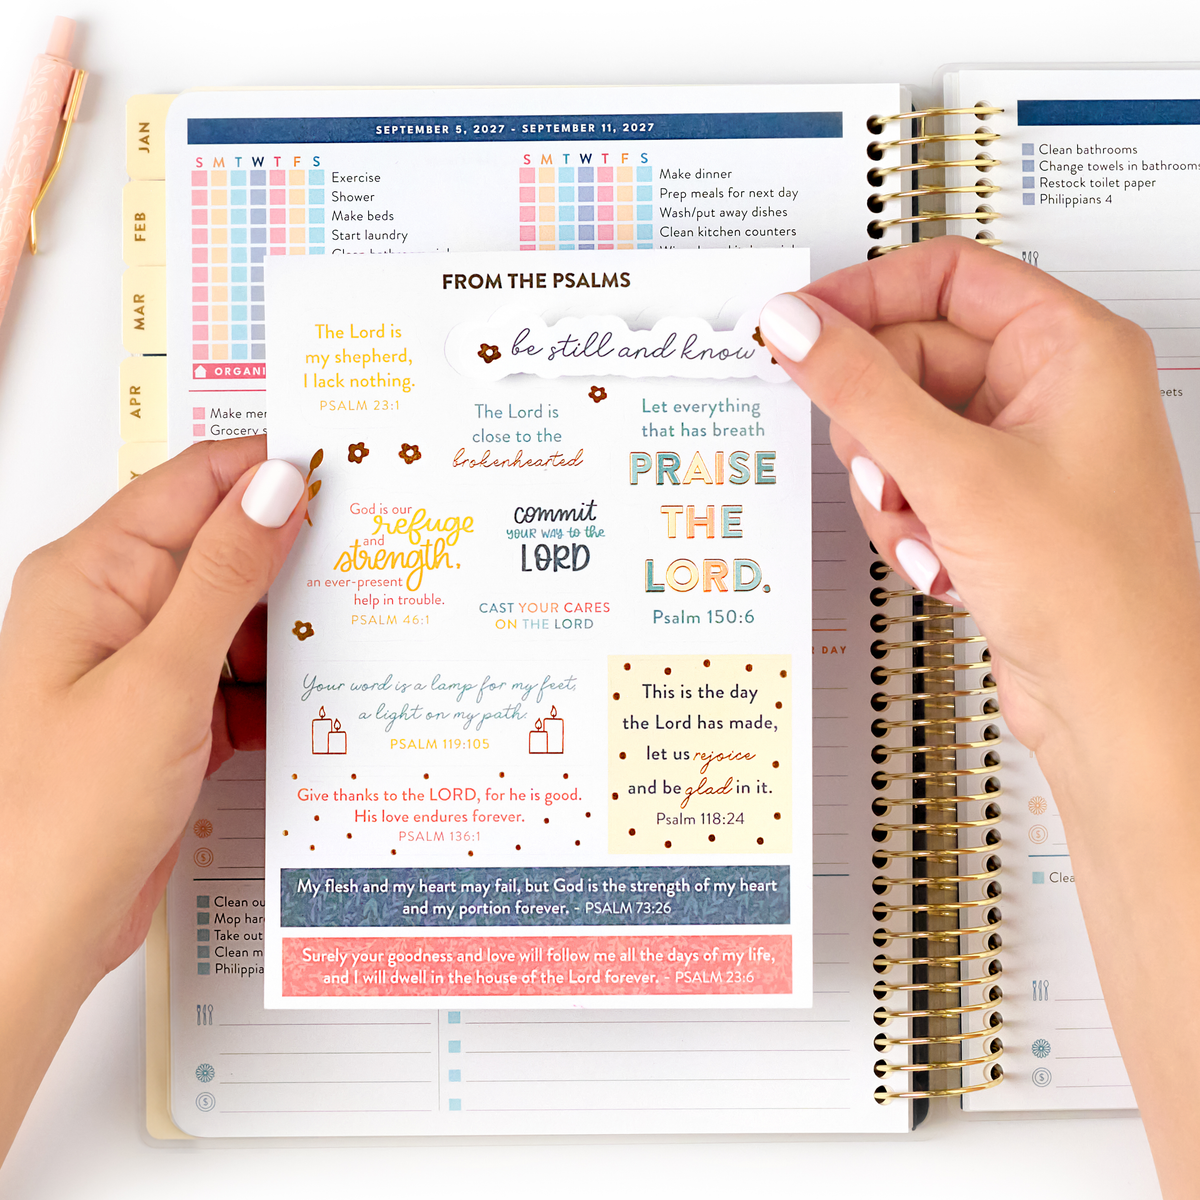 JAN
FEB
MAR
APR
SEPTEMBER 5, 2027 - SEPTEMBER 11, 2027
S M T W T F S
Exercise
Shower
Make beds
Start laundry
S M T W T F S
Make dinner
Prep meals for next day
Wash/put away dishes
Clean kitchen counters
Clean bathrooms
Change towels in bathrooms
Restock toilet paper
Philippians 4
ORGANI
Make me
Grocery s
FROM THE PSALMS
be still and know
The Lord is
my shepherd,
I lack nothing.
PSALM 23:1
The Lord is
close to the
brokenhearted
Let everything
that has breath
PRAISE
THE
LORD.
Psalm 150:6
God is our
refuge
and
strength,
an ever-present
help in trouble.
PSALM 46:1
commit
YOUR WAY to the
LORD
CAST YOUR CARES
ON THE LORD
Your word is a lamp for my feet,
a light on my path.
PSALM 119:105
This is the day
the Lord has made,
let us rejoice
and be glad in it.
Psalm 118:24
Give thanks to the LORD, for he is good.
His love endures forever.
PSALM 136:1
My flesh and my heart may fail, but God is the strength of my heart
and my portion forever. - PSALM 73:26
Surely your goodness and love will follow me all the days of my life,
and I will dwell in the house of the Lord forever. - PSALM 23:6
DAY
Clean ou
Mop har
Take out
Clean m
Philippia
Clea